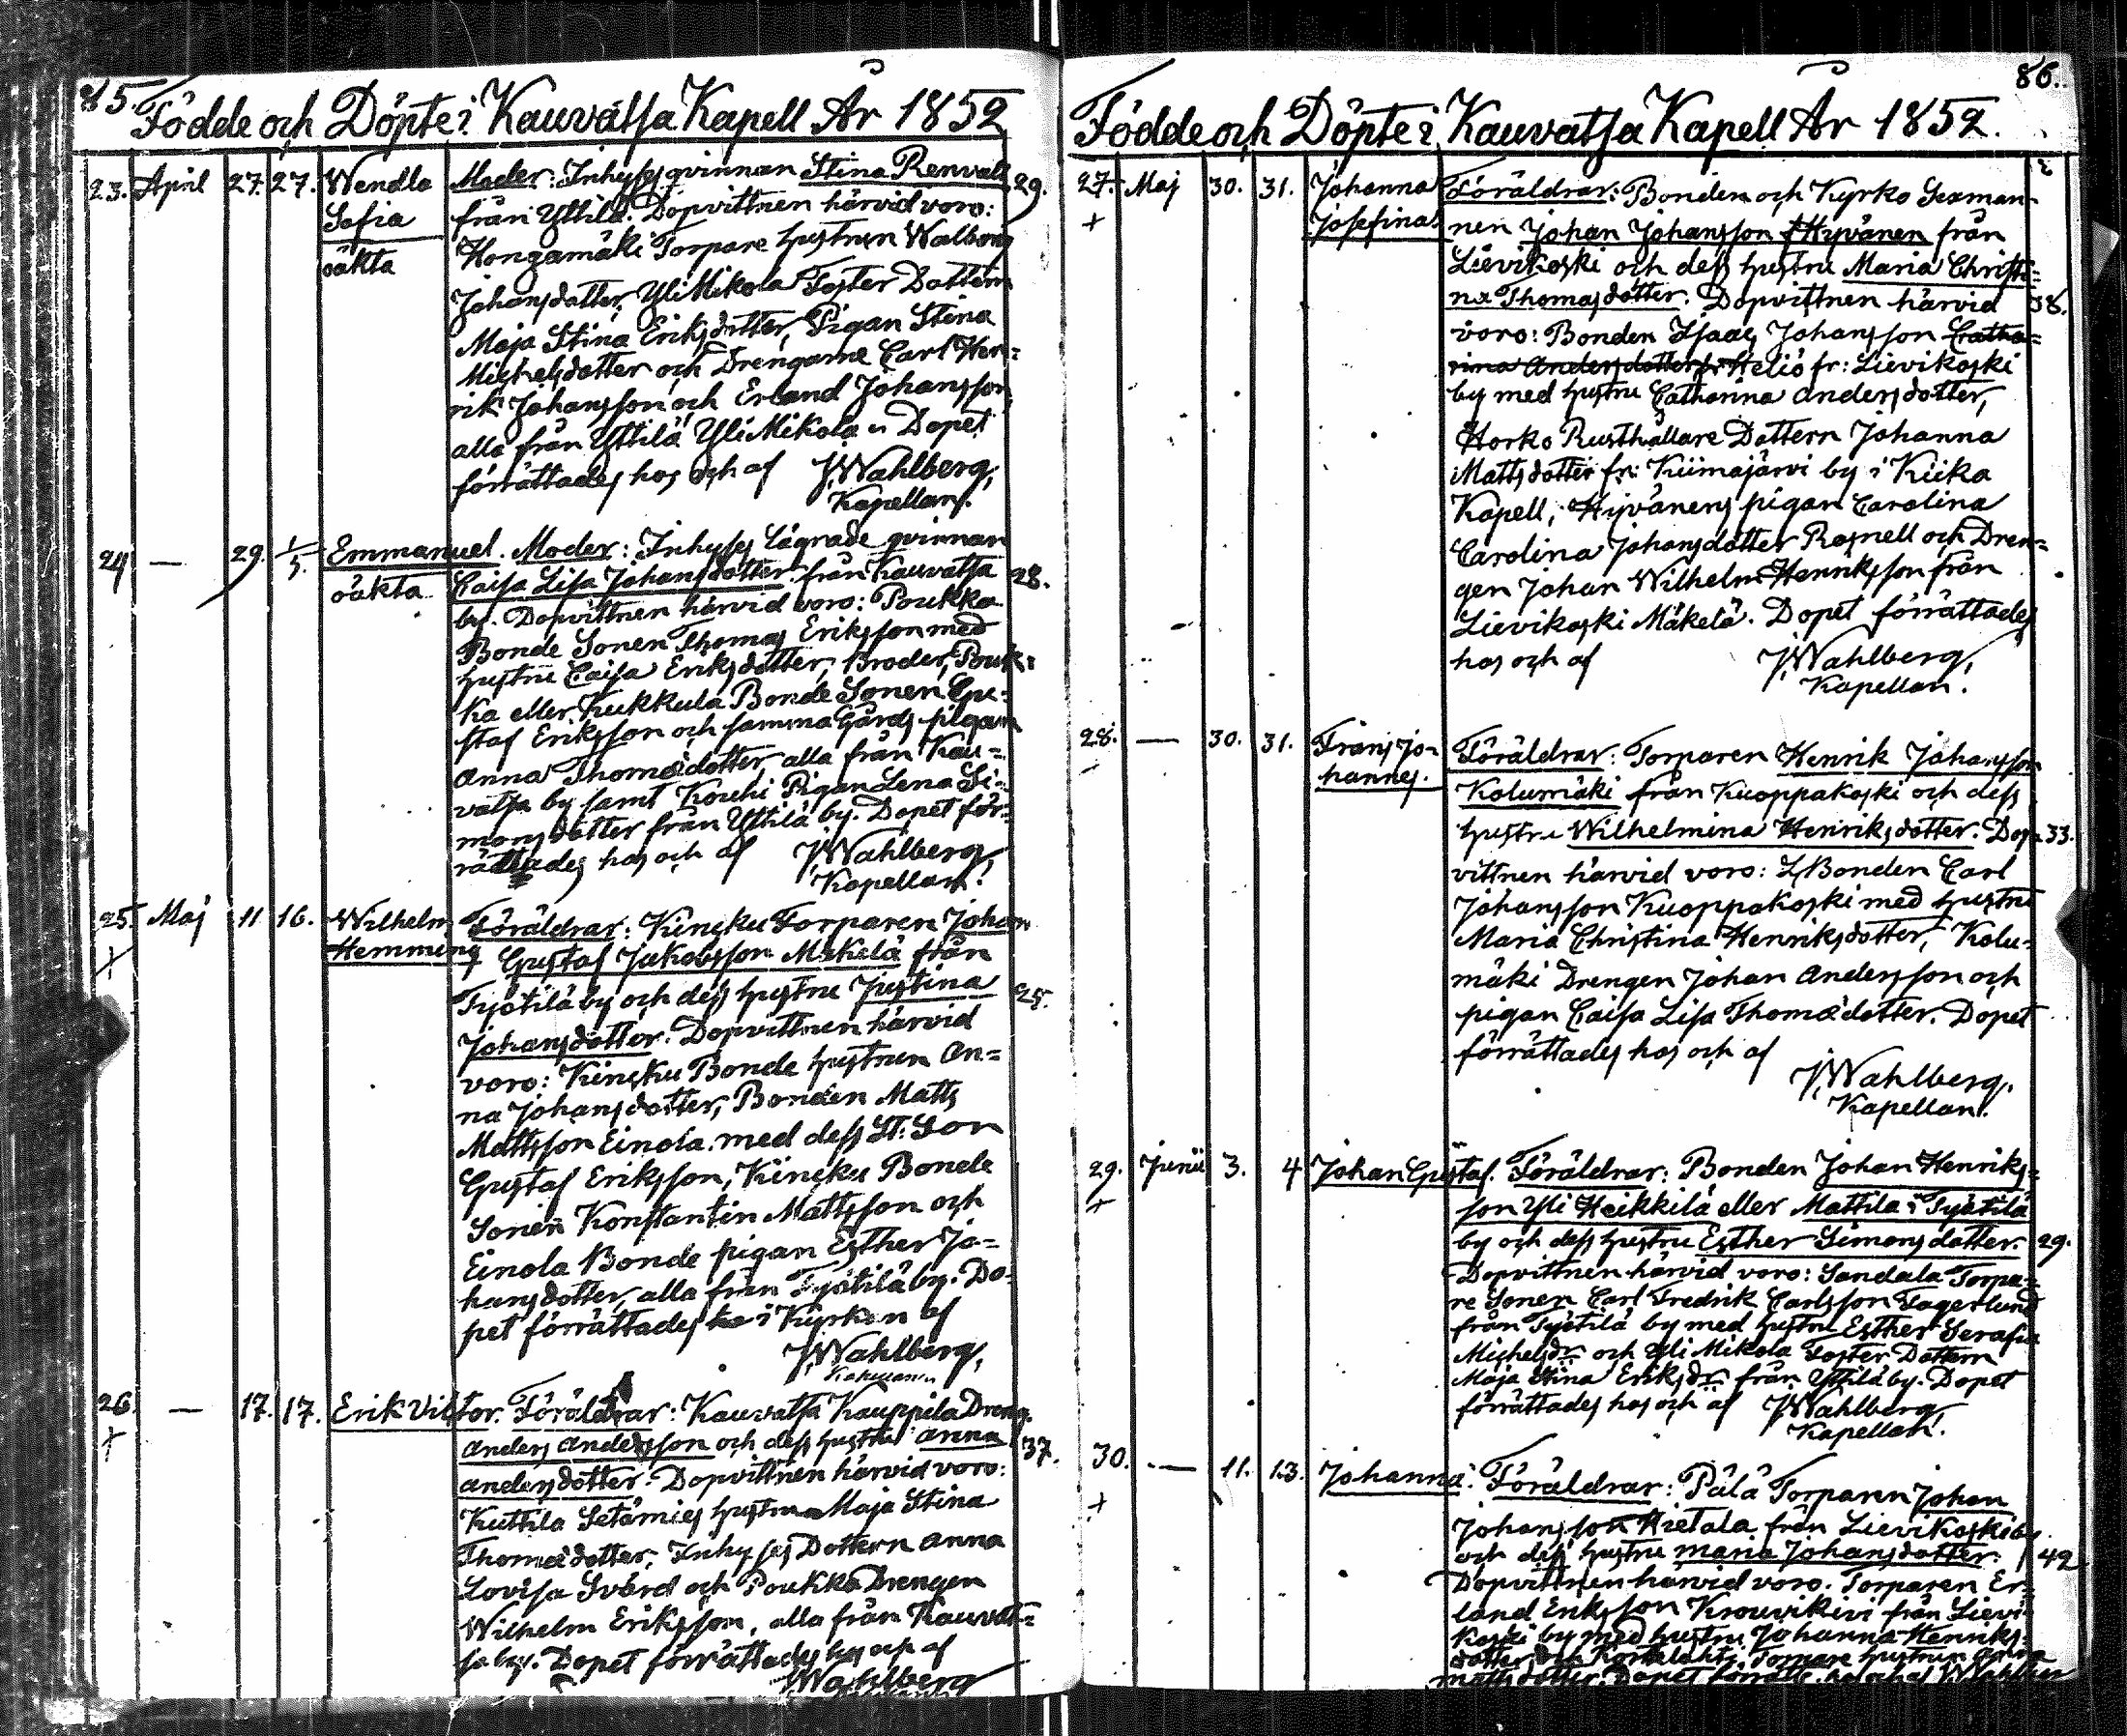 85.
Födde och Döpte i Kauvatsa Kapell År 1852
23. April 27. 27. Wendla Moder: Inhyses qvinnan Stina Renvall 29.
Sofia från Yttilä. Dopvittnen härvid voro:
oäkta Hongamäki Torpare hustrun Walborg
Johansdotter, Yli Mikola Foster Dottern
Maja Stina Eriksdotter, Pigan Stina
Michelsdotter och Drengarne Carl Hen-
rik Johansson och Erland Johansson,
alla från Yttilä Yli Mikola. Dopet
förrättades hos och af JWahlberg,
Kapellan.
24 — 29. 1/5. Emmanuel. Moder: Inhyses Lägrade qvinnan
oäkta Caisa Lisa Johansdotter från Kauvatsa 28.
by. Dopvittnen härvid voro: Poukka
Bonde Sonen Thomas Eriksson med
hustru Caisa Eriksdotter, Broder, Pouk-
ka eller Kukkula Bonde Sonen Gu-
staf Eriksson och samma Gårds pigan
Anna Thomædotter alla från Kau-
vatsa by samt Kouhi Pigan Lena Si-
monsdotter från Yttilä by. Dopet för-
rättades hos och af JWahlberg,
Kapellan.
25. Maj 11. 16. Wilhelm Föräldrar: Kinsku Torparen Johan
+ Hemming Gustaf Jakobsson Mäkelä från
Työtilä by och dess hustru Justina 25.
Johansdotter. Dopvittnen härvid
voro: Kinsku Bonde hustrun An-
na Johansdotter, Bonden Matts
Mattsson Einola med dess St: Son
Gustaf Eriksson, Kinsku Bonde
Sonen Konstantin Mattsson och
Einola Bonde pigan Esther Jo-
hansdotter, alla från Työtilä by. Do-
pet förrättades i Kyrkan af
JWahlberg,
Kapellan.
26. — 17. 17. Erik Viktor. Föräldrar: Kauvatsa Kauppila Dreng.
+ Anders Andersson och dess hustru Anna 37.
Andersdotter. Dopvittnen härvid voro:
Kuttila Setämies hustrun Maja Stina
Thomædotter, Inhyses Dottern Anna
Lovisa Svärd och Poukka Drengen
Wilhelm Eriksson, alla från Kauvat-
sa by. Dopet förrättades hos och af
JWahlberg
86.
Födde och Döpte i Kauvatsa Kapell År 1852.
27. Maj 30. 31. Johanna Föräldrar: Bonden och Kyrko Sexman-
+ Josefina nen Johan Johansson Hyvänen från
Lievikoski och dess hustru Maria Christi-
na Thomasdotter. Dopvittnen härvid 38.
voro: Bonden Isaac Johansson Catha-
rina Andersdotter fr: Heliö fr: Lievikoski
by med hustru Catharina Andersdotter,
Horko Rusthållare Dottern Johanna
Mattsdotter fr: Kiimajärvi by i Kiika
Kapell, Hyvänens pigan Carolina
Carolina Johansdotter Rosnell och Dren-
gen Johan Wilhelm Henriksson från
Lievikoski Mäkelä. Dopet förrättades
hos och af JWahlberg,
Kapellan.
28. — 30. 31. Frans Jo- Föräldrar: Torparen Henrik Johansson
hannes. Kolumäki från Kuoppakoski och dess
hustru Wilhelmina Henriksdotter. Dop- 33.
vittnen härvid voro: Bonden Carl
Johansson Kuoppakoski med hustru
Maria Christina Henriksdotter, Kolu-
mäki Drengen Johan Andersson och
pigan Caisa Lisa Thomædotter. Dopet
förrättades hos och af
JWahlberg.
Kapellan.
29. Junii 3. 4 Johan Gustaf. Föräldrar: Bonden Johan Henriks-
+ son Yli Heikkilä eller Mattila i Työtilä
by och dess hustru Esther Simonsdotter. 29.
Dopvittnen härvid voro: Sandala Torpa-
re Sonen Carl Fredrik Carlsson Fagerlund
från Työtilä by med hustru Esther Serafia
Michelsdr och Yli Mikola Foster Dottern
Maja Stina Eriksdr från Yttilä by. Dopet
förrättades hos och af JWahlberg
Kapellan.
30. — 11. 13. Johanna. Föräldrar: Pälä Torparen Johan
+ Johansson Hietala från Lievikoski by.
och dess hustru Maria Johansdotter. 42
Dopvittnen härvid voro. Torparen Er-
land Eriksson Krouvikivi från Lievi-
koski by med hustru Johanna Henriks-
dotter och Torpare hustrun Anna
Mattsdotter. Dopet förrätt. hos och af Wahlberg